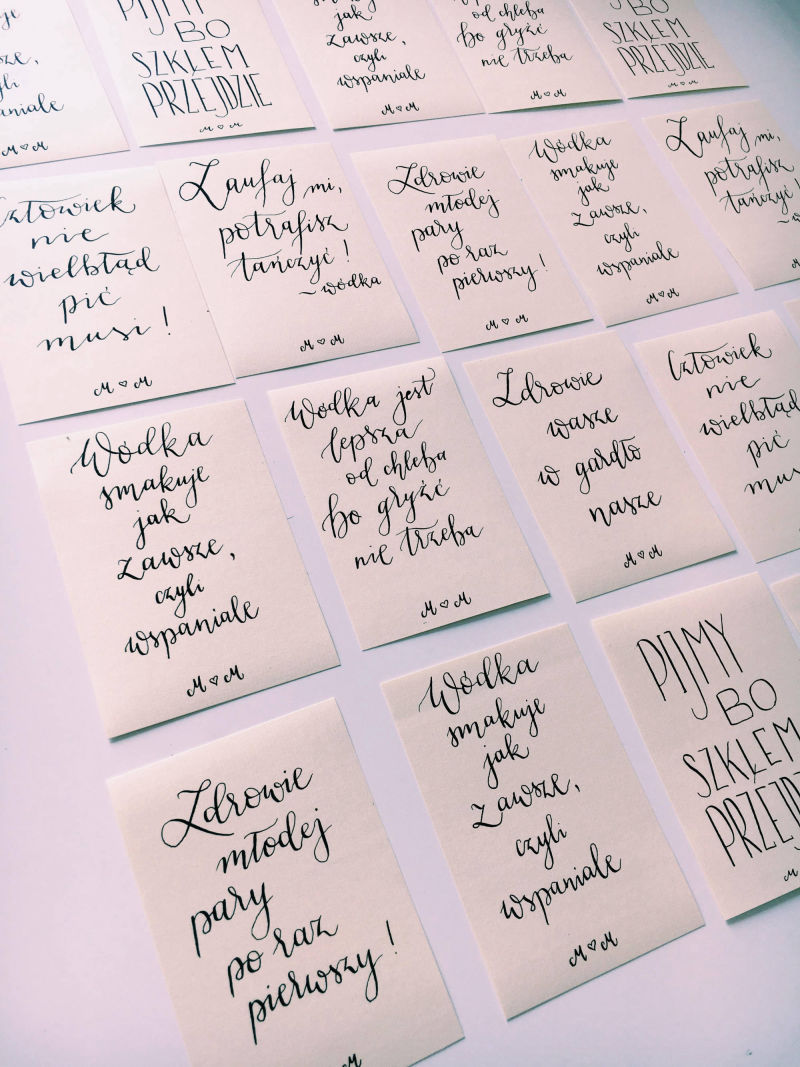 smakuje
jak
zawsze,
czyli
wspaniale
M ♡ M
PIJMY
BO
SZKŁEM
PRZEJDZIE
M ♡ M
jak
zawsze,
czyli
wspaniale
M ♡ M
od chleba
bo gryźć
nie trzeba
M ♡ M
BO
SZKŁEM
PRZEJDZIE
M ♡ M
Człowiek
nie
wielbłąd
pić
musi!
M ♡ M
Zaufaj mi,
potrafisz
tańczyć!
~wódka
M ♡ M
Zdrowie
młodej
pary
po raz
pierwszy!
M ♡ M
Wódka
smakuje
jak
zawsze,
czyli
wspaniale
M ♡ M
Zaufaj mi,
potrafisz
tańczyć!
Wódka
smakuje
jak
zawsze,
czyli
wspaniale
M ♡ M
Wódka jest
lepsza
od chleba
bo gryźć
nie trzeba
M ♡ M
Zdrowie
wasze
w gardło
nasze
M ♡ M
Człowiek
nie
wielbłąd
pić
Zdrowie
młodej
pary
po raz
pierwszy!
M
Wódka
smakuje
jak
zawsze,
czyli
wspaniale
M ♡ M
PIJMY
BO
SZKŁEM
PRZEJDZ
M